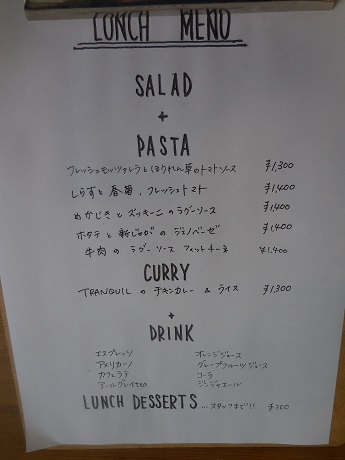 LUNCH MENU
SALAD
+
PASTA
フレッシュモッツァレラとほうれん草のトマトソース ¥1,300
しらすと春菊、フレッシュトマト ¥1,400
めかじきとズッキーニのラグーソース ¥1,400
ホタテと新じゃがのジェノベーゼ ¥1,400
牛肉のラグーソース フィットチーネ ¥1,400
CURRY
TRANQUILのチキンカレー & ライス ¥1,300
+
DRINK
エスプレッソ オレンジジュース
アメリカーノ グレープフルーツジュース
カフェラテ コーラ
アールグレイtea ジンジャエール
LUNCH DESSERTS ...スタッフまで!! ¥300